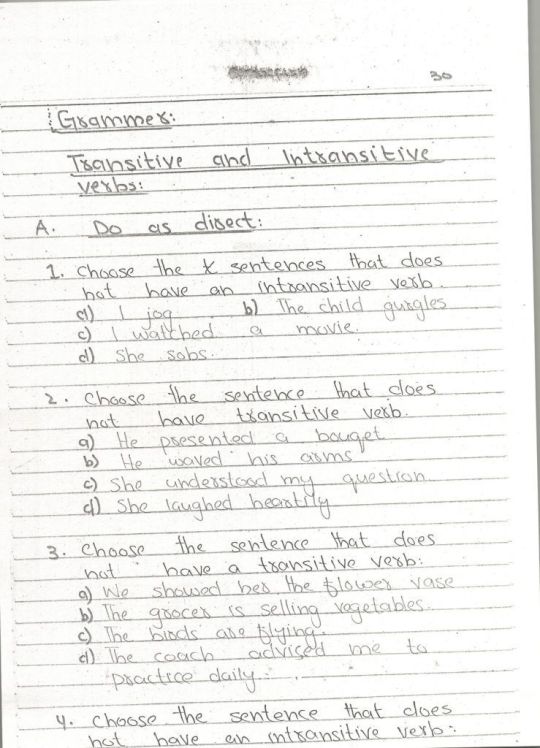 30
Grammer:
Transitive and Intransitive
verbs:
A. Do as direct:
1. Choose the sentences that does
not have an intransitive verb.
a) I jog b) The child gurgles
c) I watched a movie.
d) She sobs.
2. Choose the sentence that does
not have transitive verb.
a) He presented a bouqet
b) He waved his arms
c) She understood my question.
d) She laughed heartily
3. Choose the sentence that does
not have a transitive verb:
a) We showed her the flower vase
b) The grocer is selling vegetables.
c) The birds are flying.
d) The coach advised me to
practice daily.
4. Choose the sentence that does
not have an intransitive verb: